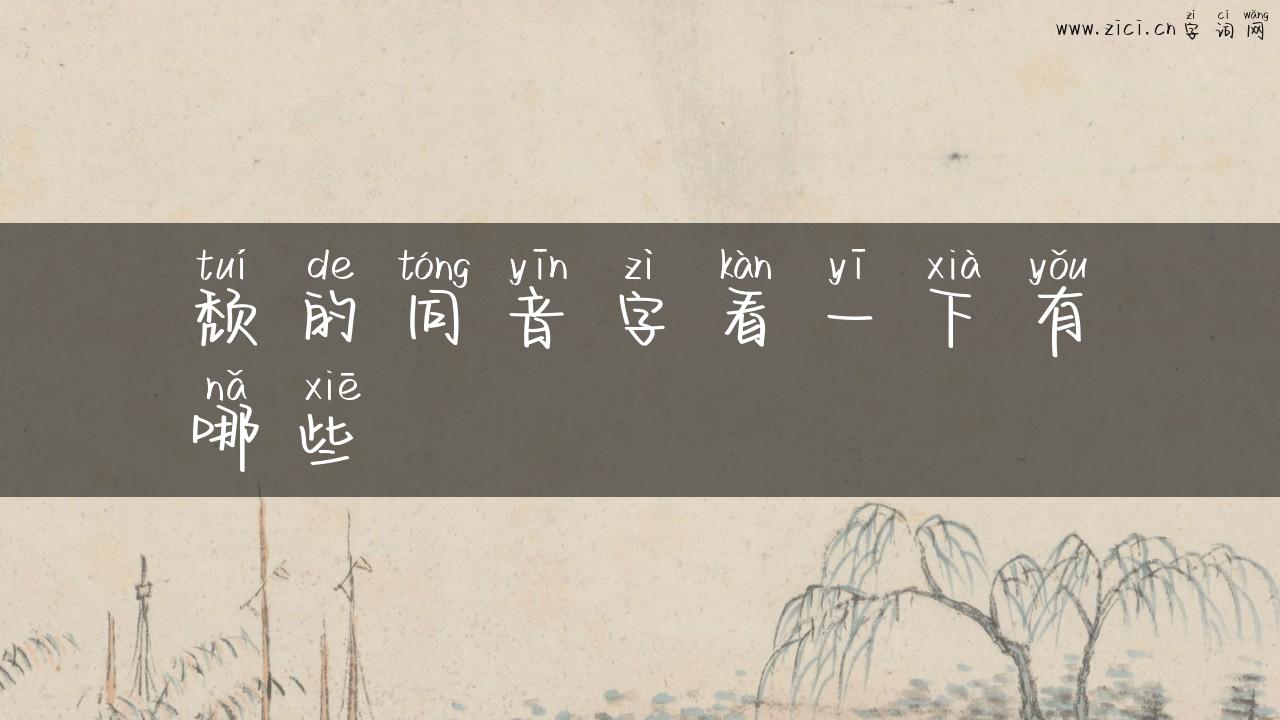 zì cí wǎng
www.zici.cn 字 词 网
tuí de tóng yīn zì kàn yī xià yǒu
颓 的 同 音 字 看 一 下 有
nǎ xiē
哪 些